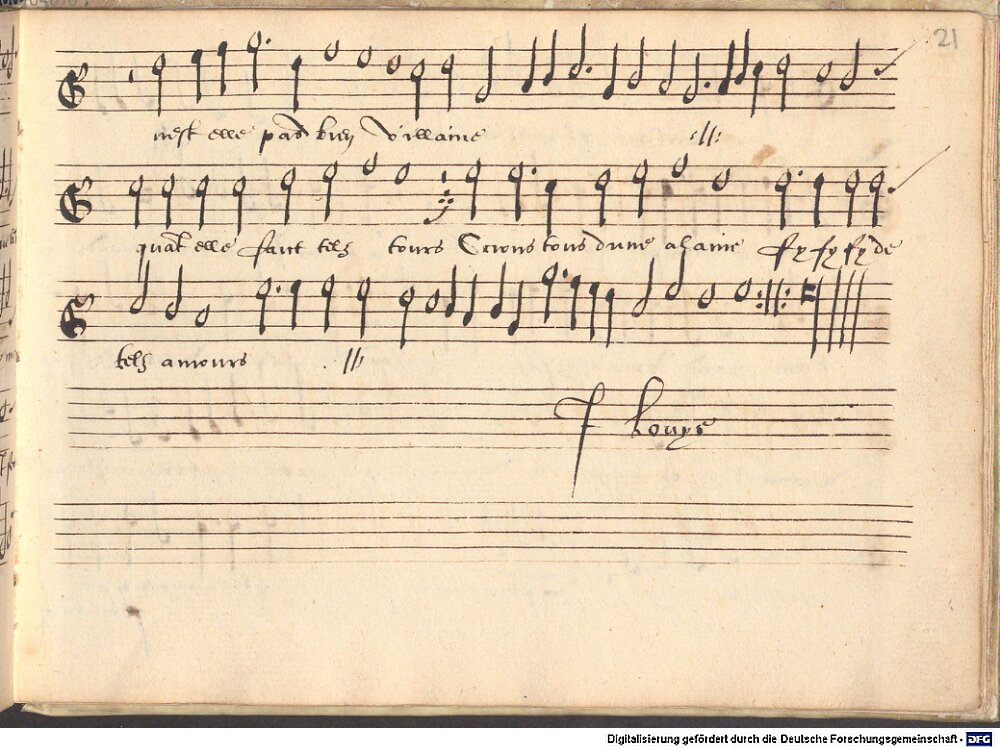 21
nest elle pas bien villaine //:
quāt elle faict telz tours Crions tous dune alaine fy fy fy de
telz amours . //:
F Louys
Digitalisierung gefördert durch die Deutsche Forschungsgemeinschaft - DFG